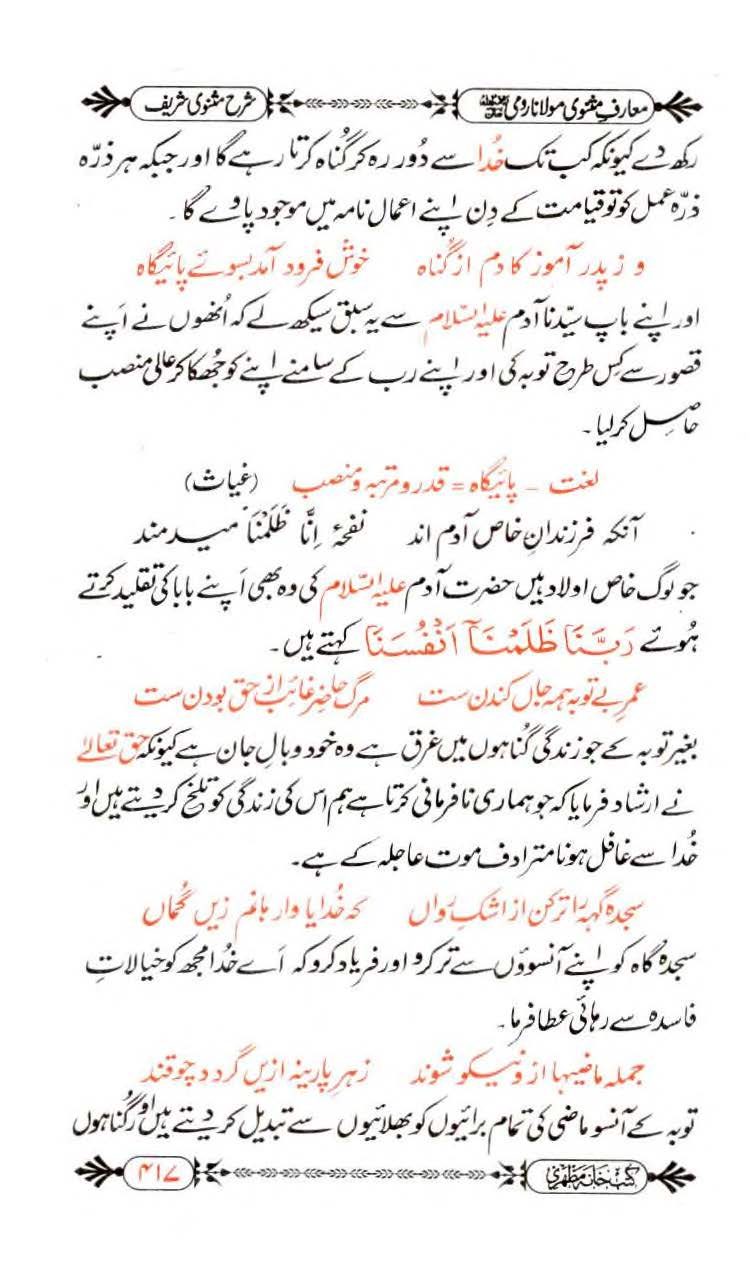 معارفِ مثنوی مولانا رومی شرح مثنوی شریف
رکھ دے کیونکہ کب تک خُدا سے دُور رہ کر گُناہ کرتا رہے گا اور جبکہ ہر ذرّہ
ذرّہ عمل کو تو قیامت کے دِن اپنے اعمال نامہ میں موجود پاوے گا۔
و ز پدر آموز کا دم از گُناہ خوش فرود آمد بسوئے پائیگاہ
اور اپنے باپ سیّدنا آدم علیہ السّلام سے یہ سبق سیکھ لے کہ اُنھوں نے اَپنے
قصور سے کِس طرح توبہ کی اور اپنے رب کے سامنے اپنے کو جُھکا کر عالی منصب
حاصِل کرلیا۔
لغت ۔ پائیگاہ = قدر و مرتبہ و منصب (غیاث)
آنکہ فرزندانِ خاص آدم اند نفحۂ اِنَّا ظَلَمْنَا میدمند
جو لوگ خاص اولاد ہیں حضرت آدم علیہ السّلام کی وہ بھی اَپنے بابا کی تقلید کرتے
ہُوئے رَبَّنَا ظَلَمْنَآ اَنْفُسَنَا کہتے ہیں۔
عمرِ بے توبہ ہمہ جاں کندن ست مرگ حاضر غائب از حق بودن ست
بغیر توبہ کے جو زندگی گُناہوں میں غرق ہے وہ خود وبالِ جان ہے کیونکہ حق تعالےٰ
نے ارشاد فرمایا کہ جو ہماری نافرمانی کرتا ہے ہم اس کی زندگی کو تلخ کر دیتے ہیں اور
خُدا سے غافل ہونا مترادف موت عاجلہ کے ہے۔
سجدہ گہہ را تر کن از اشکِ رواں کہ خُدایا وارہانم زیں گُماں
سجدہ گاہ کو اپنے آنسوؤں سے تر کرو اور فریاد کرو کہ اَے خُدا مجھ کو خیالاتِ
فاسدہ سے رہائی عطا فرما۔
جملہ ماضیہا از و نیکو شوند زہرِ پارینہ ازیں گردد چو قند
توبہ کے آنسو ماضی کی تمام برائیوں کو بھلائیوں سے تبدیل کر دیتے ہیں اور گُناہوں
کتب خانہ مظہری ۴۱۷